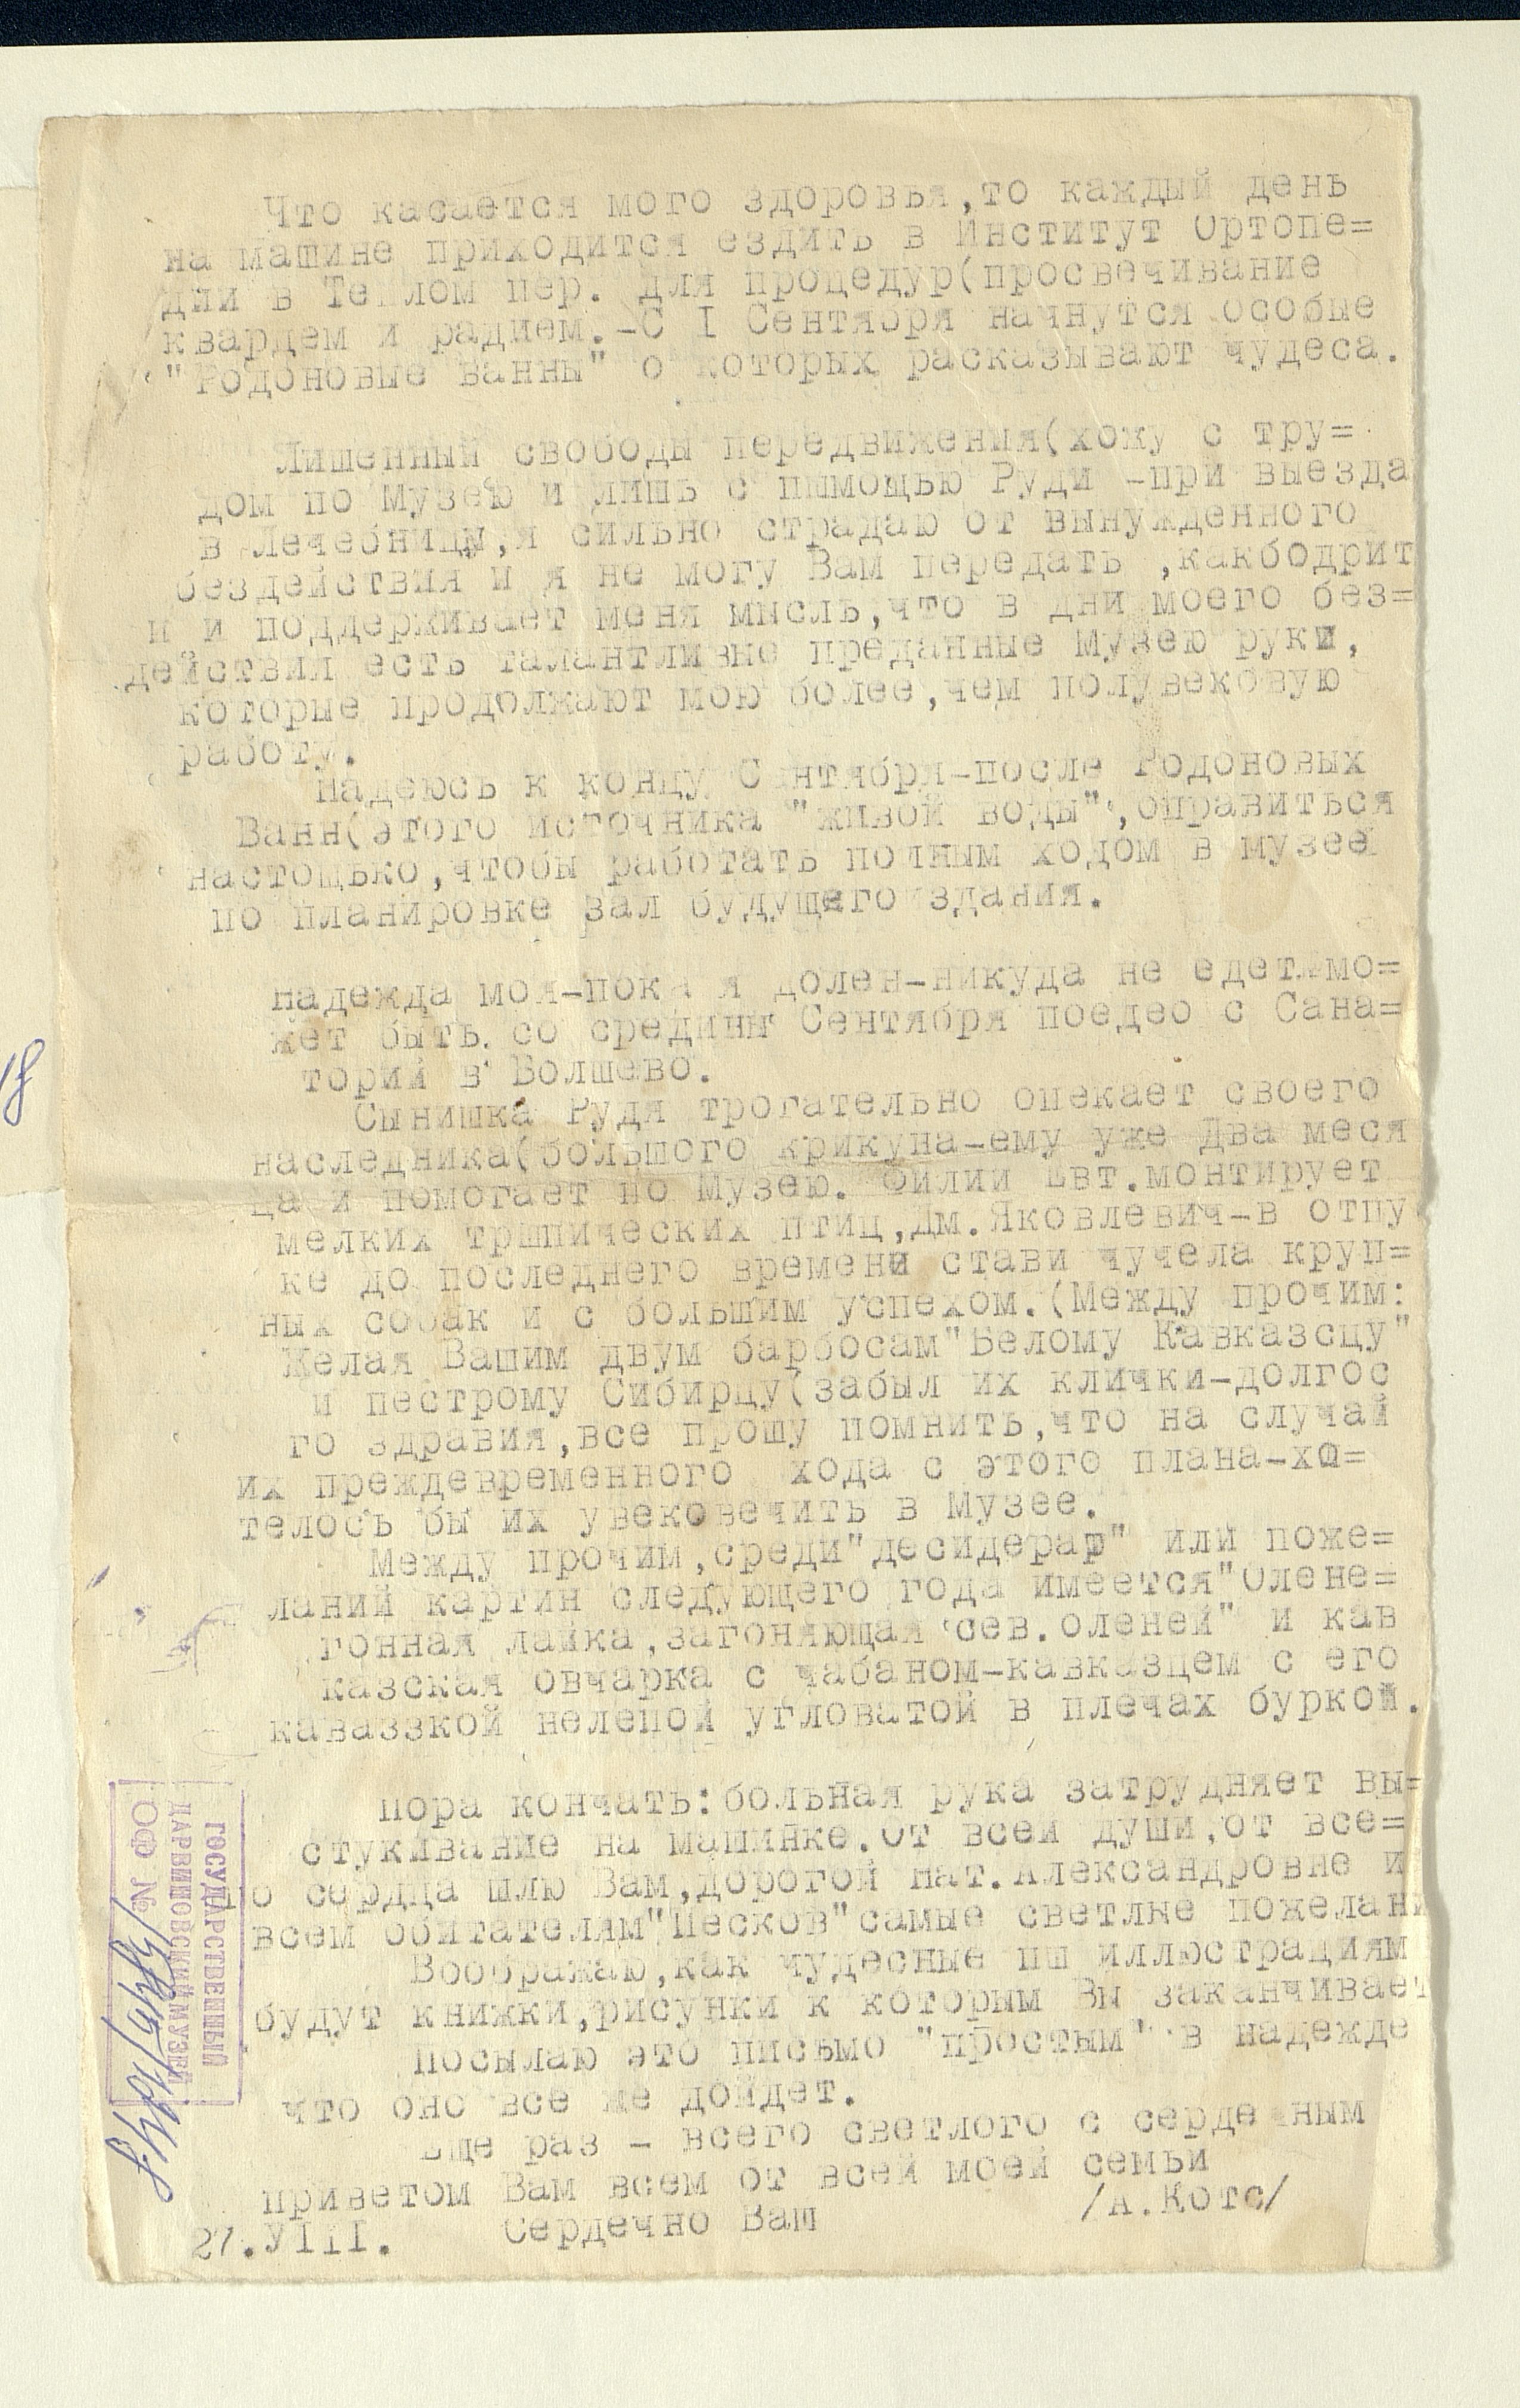 Что касается мого здоровья,то каждый день
на машине приходится ездить в Институт Ортопе=
дии в Теплом пер. для процедур(просвечивание
кварцем и радием.-С I Сентября начнутся особые
"Родоновые Ванны" о которых расказывают чудеса.
Лишенный свободы передвижения(хожу с тру=
дом по Музею и лишь с пымощью Руди -при выезда
в Лечебницы,я сильно страдаю от вынужденного
бездействия и я не могу Вам передать ,какбодрит
и и поддерживает меня мысль,что в дни моего без=
действия есть талантливые преданные Музею руки,
которые продолжают мою более,чем полувековую
работу.
Надеюсь к концу Сентября-после Родоновых
Ванн(этого источника "живой воды",оправиться
настощько,чтобы работать полным ходом в музее
по планировке зал будущего здания.
Надежда моя-пока я долен-никуда не едет.мо=
жет быть. со средины Сентября поедео с Сана=
торий в Болшево.
Сынишка Рудя трогательно опекает своего
наследника(большого крикуна-ему уже Два меся
ца и помогает по Музею. Филип Евт.монтирует
мелких тршпических птиц,Дм.Яковлевич-в отпу
ке до последнего времени стави чучела круп=
ных собак и с большим успехом.(Между прочим:
Желая Вашим двум барбосам"Белому Кавказсцу"
и пестрому Сибирцу(забыл их клички-долгос
го здравия,все прошу помнить,что на случай
их преждевременного хода с этого плана-хо=
телось бы их увековечить в Музее.
Между прочим,среди"десидерат" или поже=
ланий картин следующего года имеется"Олене=
гонная лайка,загоняющая сев.оленей" и кав
казская овчарка с чабаном-кавказцем с его
каваззкой нелепой угловатой в плечах буркой.
Пора кончать:больная рука затрудняет вы=
стукивание на машинке.От всей души,от все=
го сердца шлю Вам,дорогой Нат.Александровне и
всем обитателям"Песков"самые светлые пожелани
Воображаю,как чудесные пш иллюстрациям
будут книжки,рисунки к которым Вы заканчивает
Посылаю это письмо "простым" в надежде
что оно все же дойдет.
Еще раз - всего светлого с сердечным
приветом Вам всем от всей моей семьи
/А.Котс/
27.УIII. Сердечно Ваш
ГОСУДАРСТВЕННЫЙ
ДАРВИНОВСКИЙ МУЗЕЙ
ОФ №